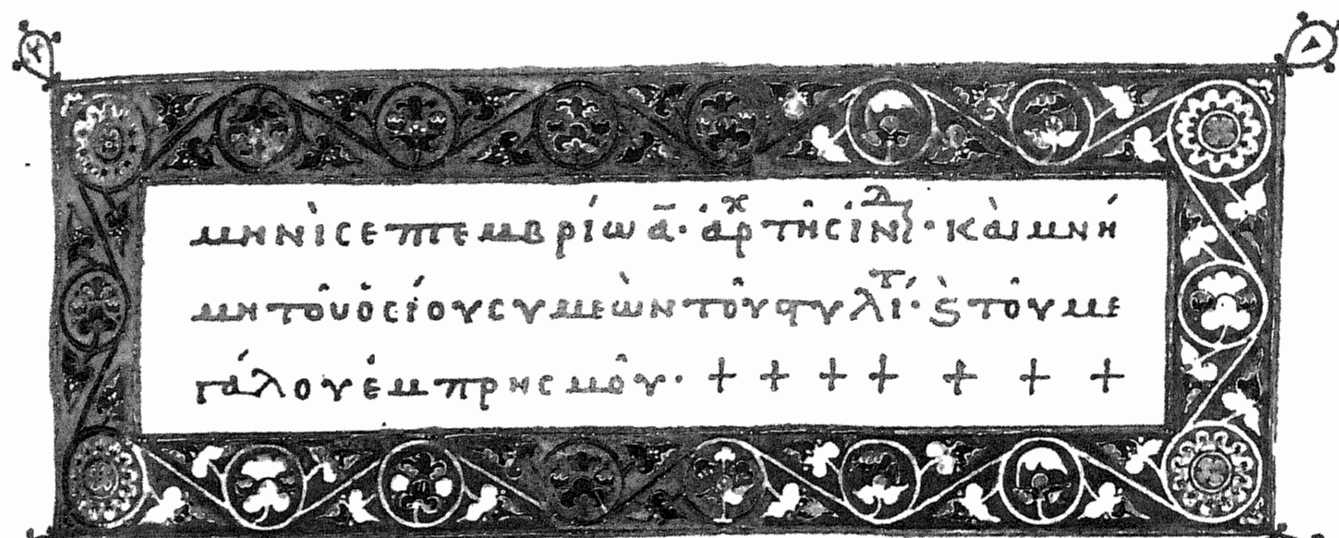 μηνὶ σεπτεμβρίω ᾱ· ἀρχ τῆς ἰνδ· καὶ μνή
μη τοῦ ὁσίου συμεὼν τοῦ στυλίτ· ϗ τοῦ με
γάλου ἐμπρησμοῦ· + + + + + + +